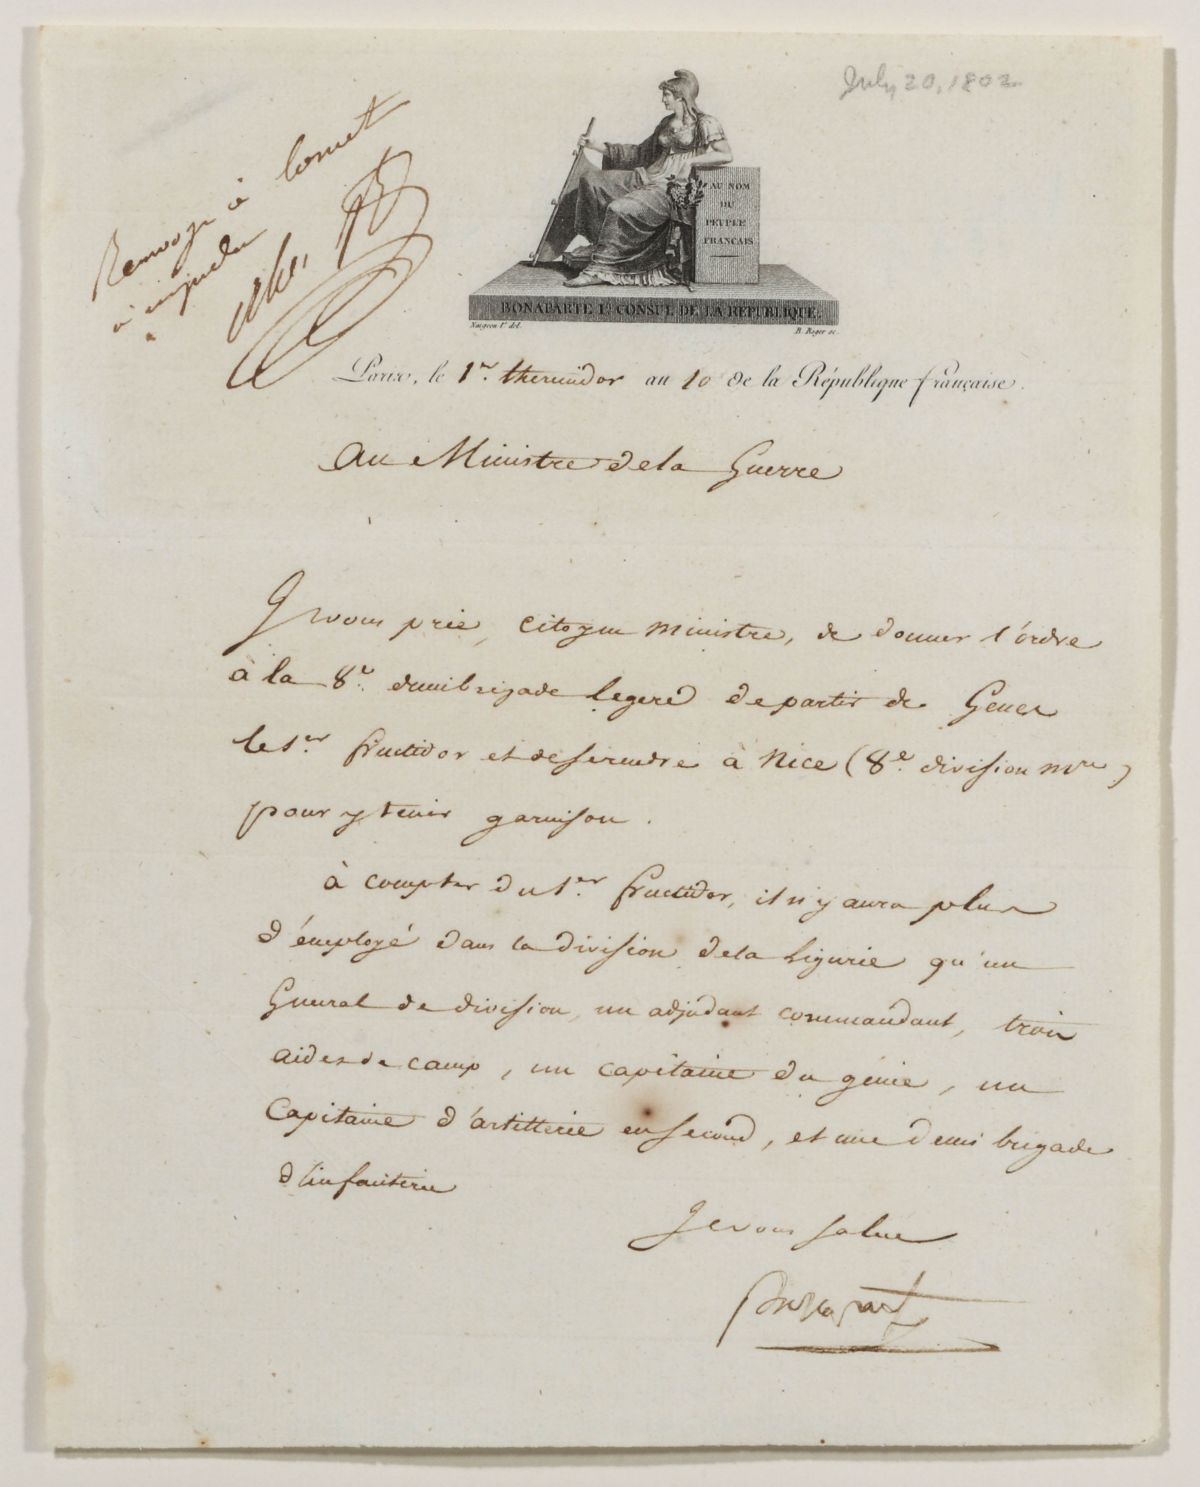 July 20, 1802
Renvoyé à Comet
AU NOM
DU
PEUPLE
FRANÇAIS
BONAPARTE 1er CONSUL DE LA REPUBLIQUE.
Naigeon Je del.
B. Roger sc.
Paris, le 1er. thermidor an 10 de la République française.
Au Ministre de la Guerre
Je vous prie, citoyen ministre, de donner l'ordre
à la 8e. demibrigade legere de partir de Genes
le 1er fructidor et de se rendre à Nice (8e. division mre)
pour y tenir garnison.
à compter du 1er fructidor, il n'y aura plus
d'employé dans la division de la Ligurie qu'un
Général de division, un adjudant commandant, trois
aides de camp, un capitaine du génie, un
Capitaine d'artillerie en second, et une demi brigade
d'infanterie
Je vous salue
Bonaparte